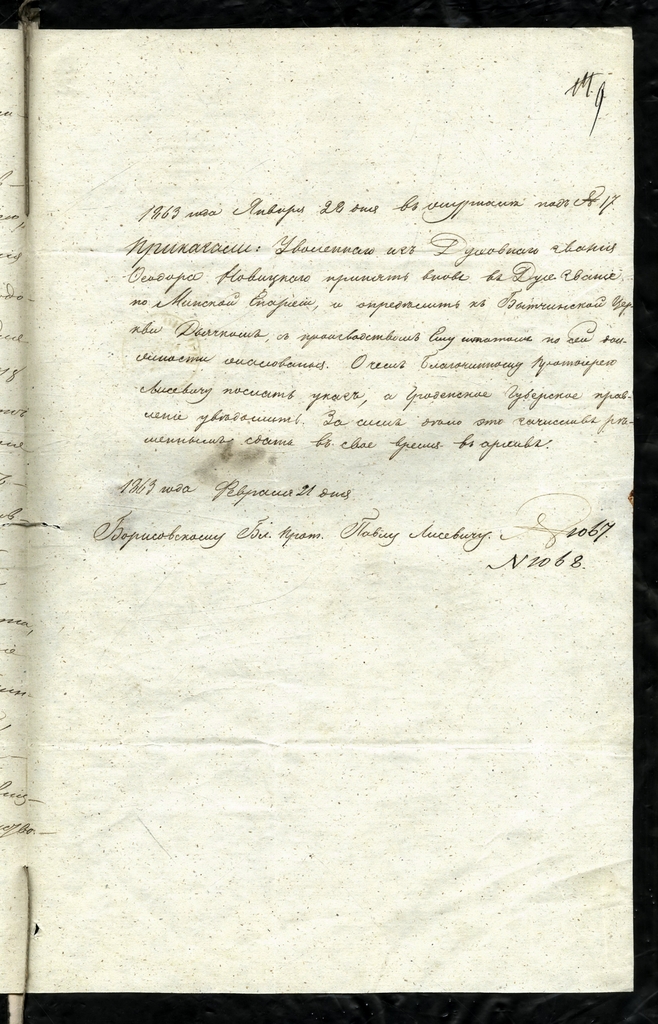 9
1863 года Января 22 дня въ журналѣ подъ № 17
Приказали: Уволеннаго изъ Духовнаго званія
Ѳеодора Новицкаго принять вновь въ Дух. званіе
по Минской Епархіи, и опредѣлить къ Бытчинской Цер-
кви Дьячкомъ, съ производствомъ ему по сей дол-
жности жалованья. О чемъ Благочинному Протоіерею
Лисевичу послать указъ, а Гродненское Губерское прав-
леніе увѣдомить. За симъ дѣло это зачисливъ рѣ-
шеннымъ сдать въ свое время въ архивъ.
1863 года Февраля 21 дня
Борисовскому Бл. Прот. Павлу Лисевичу. № 1067.
№ 1068.